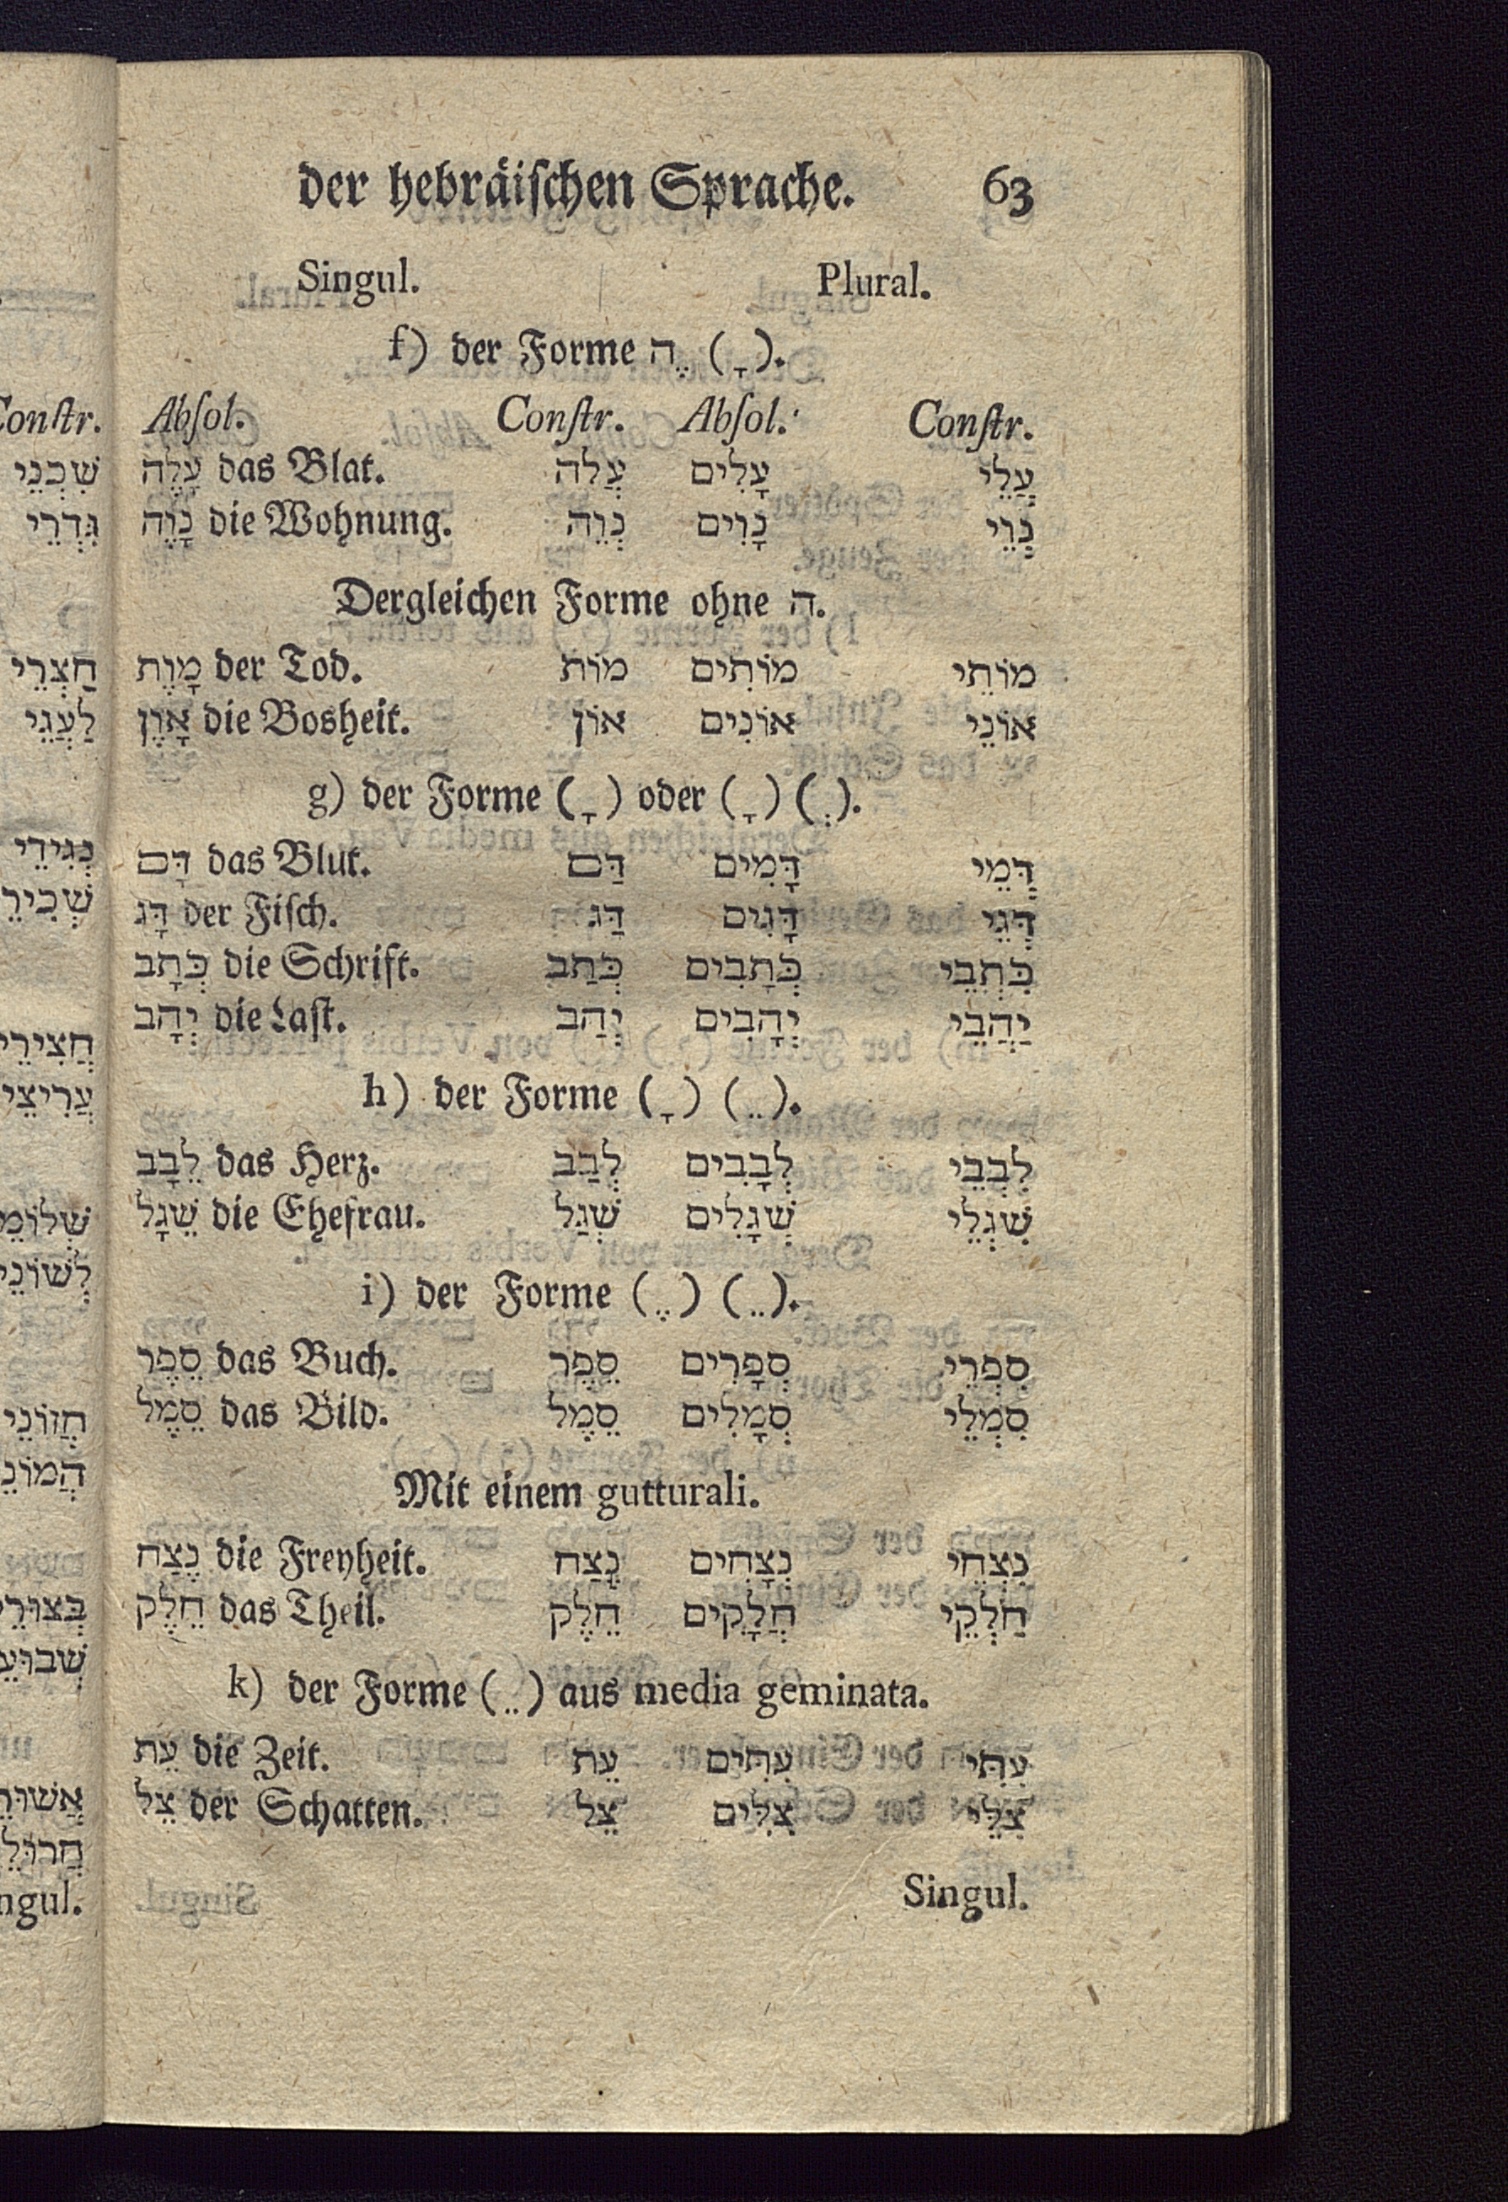 der hebräiſchen Sprache. 63
Singul. Plural.
f) der Forme הֶ ( ָ ).
Abſol. Conſtr. Abſol. Conſtr.
עָלֶה das Blat. עֲלֵה עָלִים עֲלֵי
נָוֶה die Wohnung. נְוֵה נָוִים נְוֵי
Dergleichen Forme ohne ה.
מָוֶת der Tod. מוֹת מוֹתִים מוֹתֵי
אָוֶן die Bosheit. אוֹן אוֹנִים אוֹנֵי
g) der Forme ( ָ ) oder ( ָ ) ( ְ ).
דָּם das Blut. דַּם דָּמִים דְּמֵי
דָּג der Fiſch. דַּג דָּגִים דְּגֵי
כְּתָב die Schrift. כְּתַב כְּתָבִים כִּתְבֵי
יְהָב die Laſt. יְהַב יְהָבִים יַהֲבֵי
h) der Forme ( ָ ) ( ֵ ).
לֵבָב das Herz. לְבַב לְבָבִים לִבְבֵי
שֵׁגָל die Ehefrau. שְׁגַל שְׁגָלִים שִׁגְלֵי
i) der Forme ( ֶ ) ( ֵ ).
סֵפֶר das Buch. סֵפֶר סְפָרִים סִפְרֵי
סֵמֶל das Bild. סֵמֶל סְמָלִים סִמְלֵי
Mit einem gutturali.
נֶצַח die Freyheit. נֶצַח נְצָחִים נִצְחֵי
חֵלֶק das Theil. חֵלֶק חֲלָקִים חַלְקֵי
k) der Forme ( ֵ ) aus media geminata.
עֵת die Zeit. עֵת עִתִּים עִתֵּי
צֵל der Schatten. צֵל צִלִּים צִלֵּי
Singul.